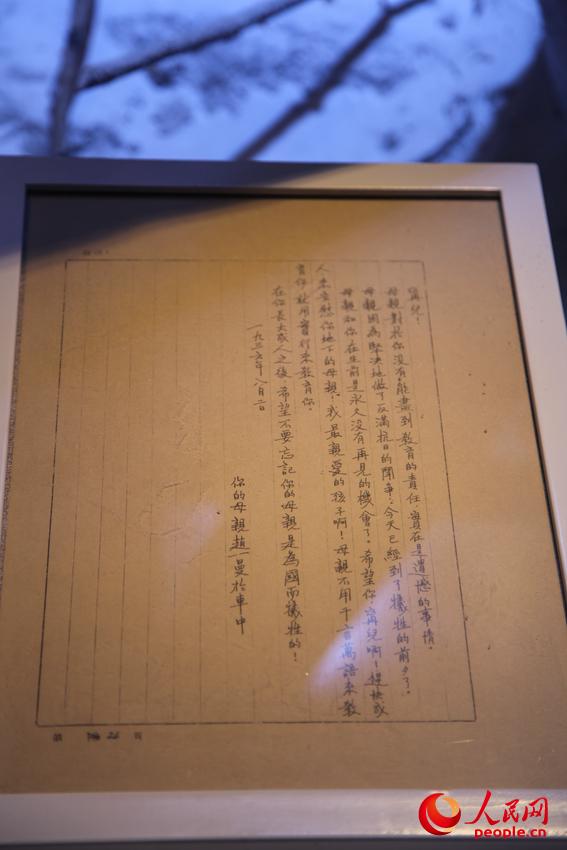 寧兒:
母親對於你沒有能盡到教育的責任,實在是遺憾的事情。
母親因為堅決地做了反滿抗日的鬥爭,今天已經到了犧牲的前夕了。
母親和你在生前是永久沒有再見的機會了。希望你,寧兒啊!趕快成
人來安慰你地下的母親!我最親愛的孩子啊!母親不用千言萬語來教
育你,就用實行來教育你。
在你長大成人之後,希望不要忘記你的母親是為國而犧牲的!
一九三六年八月二日
你的母親趙一曼於車中
第 頁
人民网
people.cn